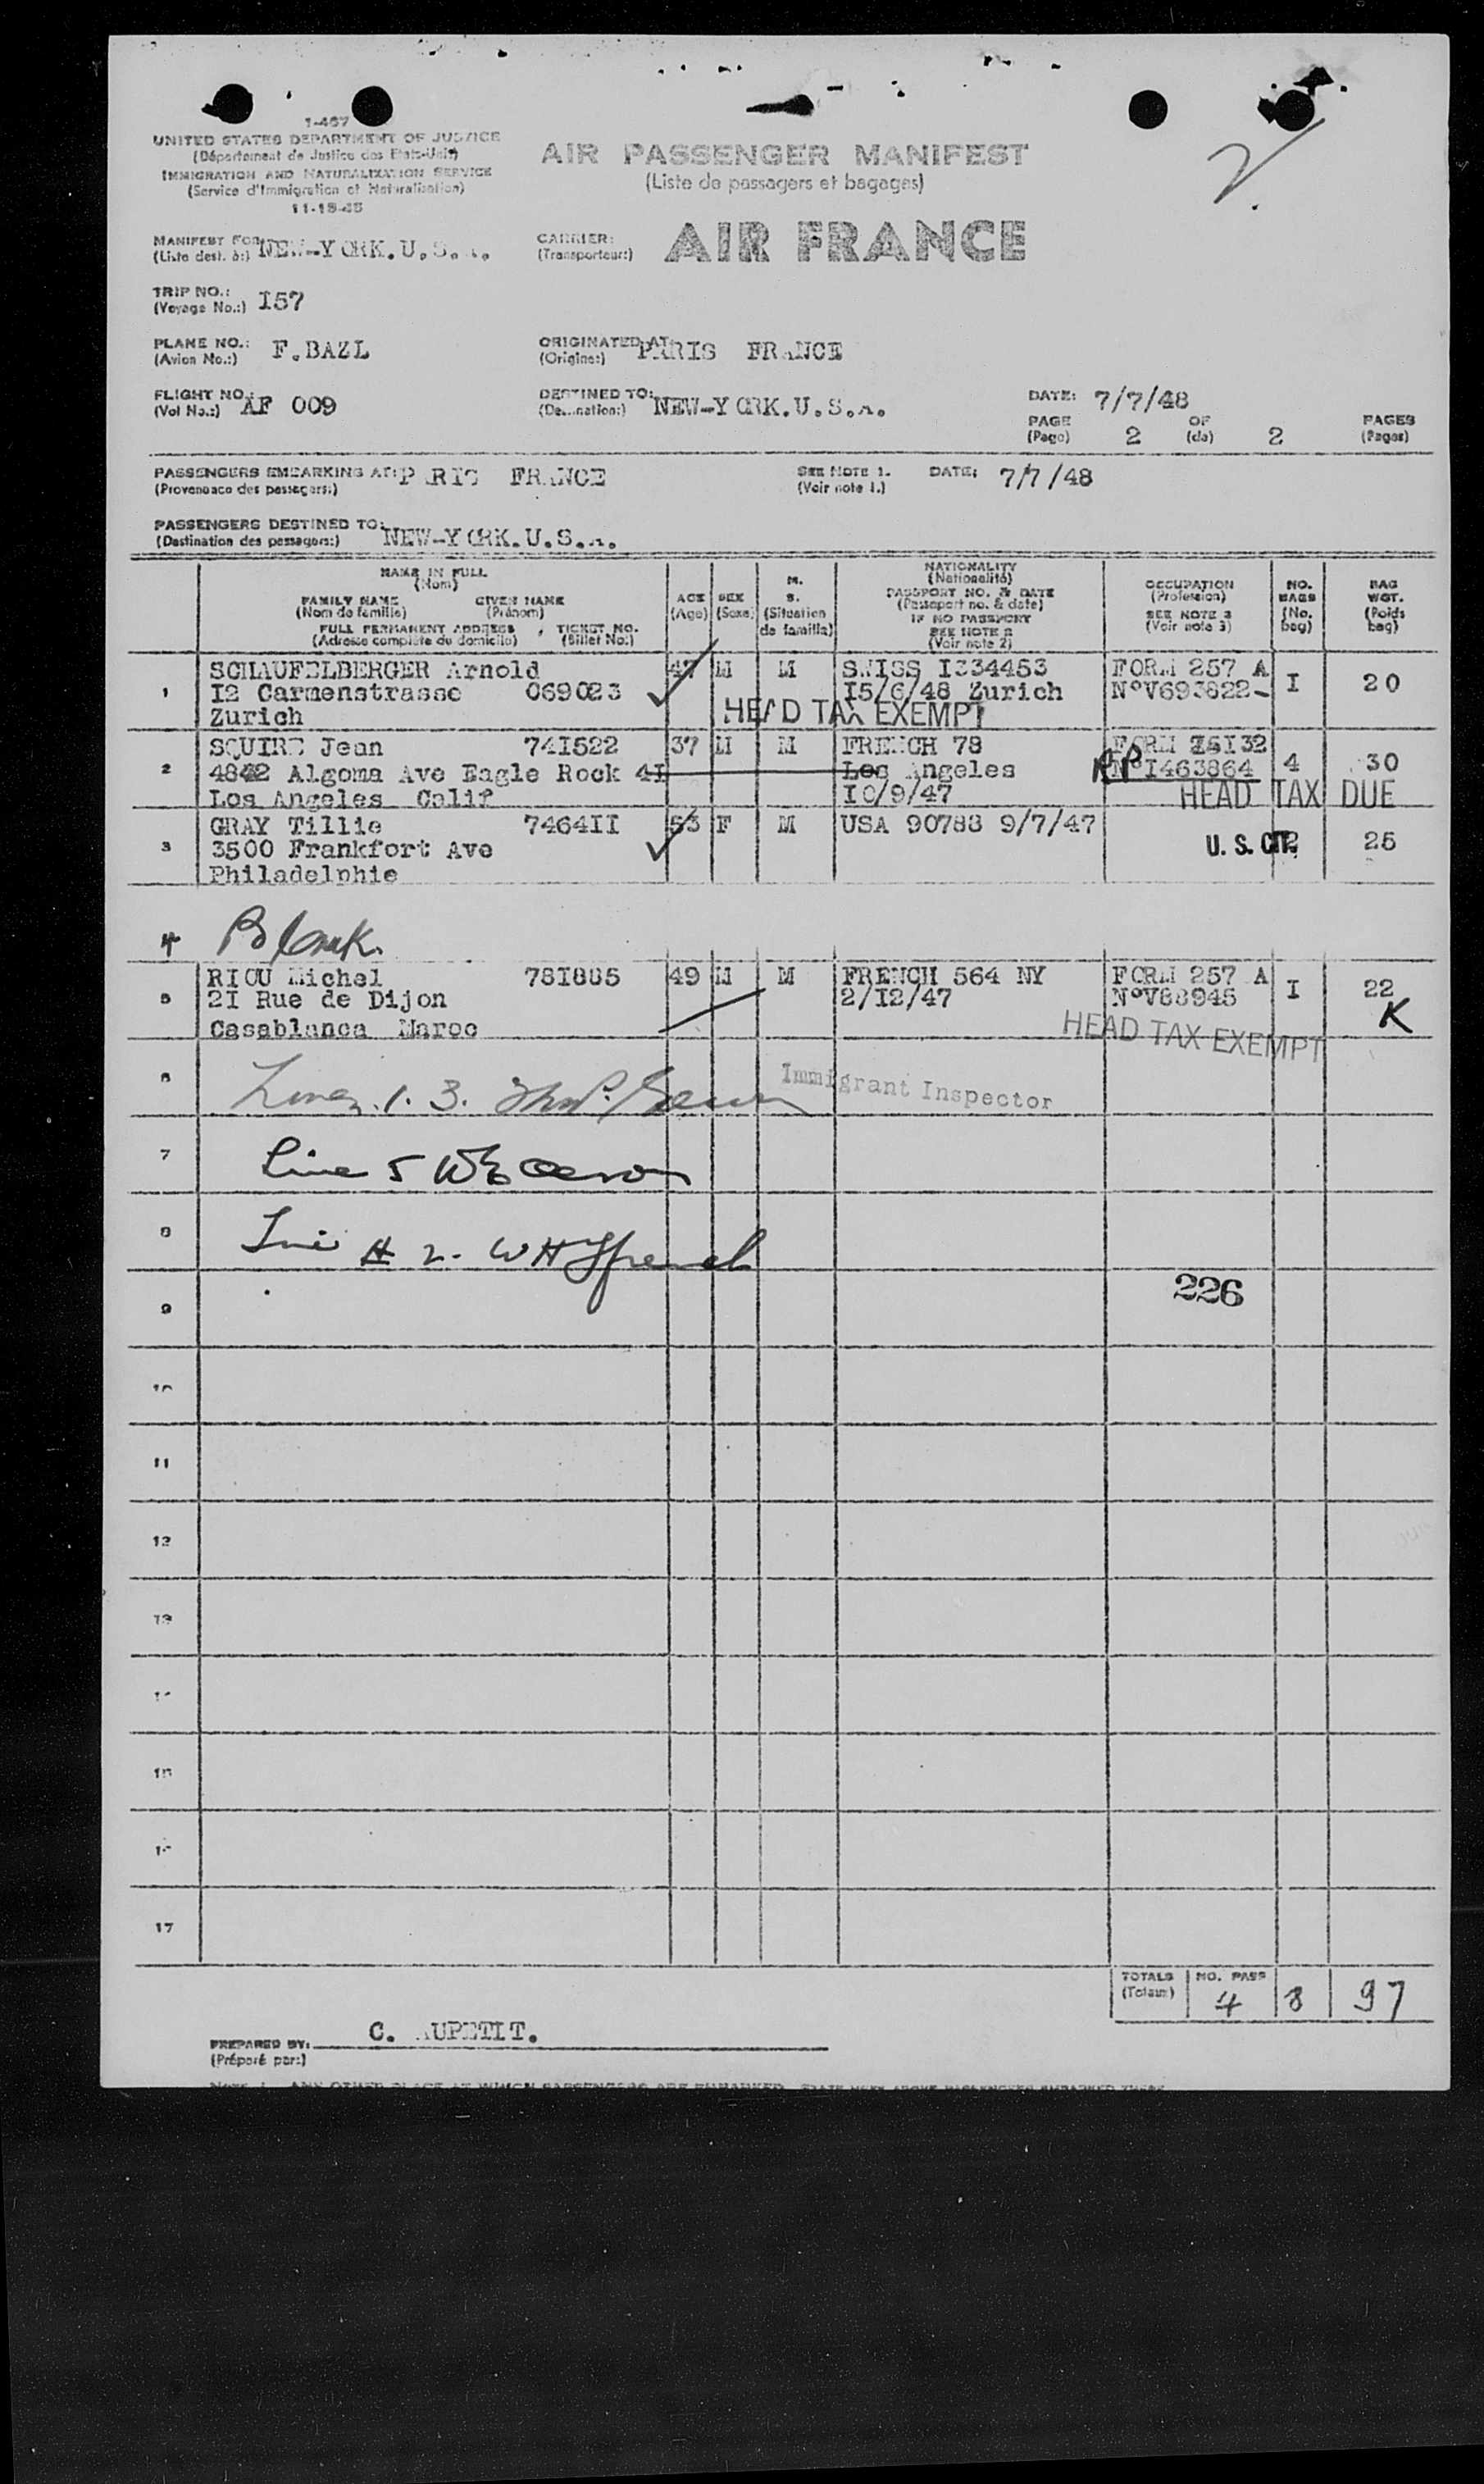 I-467
UNITED STATES DEPARTMENT OF JUSTICE
(Département de Justice des Etats-Unis)
IMMIGRATION AND NATURALIZATION SERVICE
(Service d'Immigration et Naturalisation)
11-15-45
AIR PASSENGER MANIFEST
(Liste de passagers et bagages)
2
MANIFEST FOR: NEW-YORK.U.S.A.
(Liste dest. à:)
CARRIER: AIR FRANCE
(Transporteur:)
TRIP NO.: I57
(Voyage No.:)
PLANE NO.: F.BAZL
(Avion No.:)
ORIGINATED AT: PARIS FRANCE
(Origine:)
FLIGHT NO.: AF 009
(Vol No.:)
DESTINED TO: NEW-YORK.U.S.A.
(Destination:)
DATE: 7/7/48
PAGE 2 OF 2 PAGES
(Page) (de) (Pages)
PASSENGERS EMBARKING AT: PARIS FRANCE
(Provenance des passagers:)
SEE NOTE 1.
(Voir note 1.)
DATE: 7/7/48
PASSENGERS DESTINED TO: NEW-YORK.U.S.A.
(Destination des passagers:)
NAME IN FULL
(Nom)
FAMILY NAME GIVEN NAME
(Nom de famille) (Prénom)
FULL PERMANENT ADDRESS TICKET NO.
(Adresse complète du domicile) (Billet No.:)
AGE
(Age)
SEX
(Sexe)
M.
S.
(Situation
de famille)
NATIONALITY
(Nationalité)
PASSPORT NO. & DATE
(Passeport no. & date)
IF NO PASSPORT
SEE NOTE 2
(Voir note 2)
OCCUPATION
(Profession)
SEE NOTE 3
(Voir note 3)
NO.
BAGS
(No.
bag)
BAG
WGT.
(Poids
bag)
1 SCHAUFELBERGER Arnold 47 M M SWISS I334453 FORM 257 A I 20
I2 Carmenstrasse 069023 I5/6/48 Zurich NºV693822-
Zurich HEAD TAX EXEMPT
2 SQUIRE Jean 74I522 37 M M FRENCH 78 FORM I32 4 30
4842 Algoma Ave Eagle Rock 4I Los Angeles RP NºI463864
Los Angeles Calif I0/9/47 HEAD TAX DUE
3 GRAY Tillie 7464II 53 F M USA 90788 9/7/47 2 25
3500 Frankfort Ave U. S. CIT.
Philadelphie
4 Blank.
5 RIOU Michel 78I885 49 M M FRENCH 564 NY FORM 257 A I 22
2I Rue de Dijon 2/I2/47 NºV88945 K
Casablanca Maroc HEAD TAX EXEMPT
6 Lines. 1. 3. Immigrant Inspector
7 Line 5
8 Line # 2- WH French
9 226
10
11
12
13
14
15
16
17
TOTALS NO. PASS
(Totaux) 4 8 97
PREPARED BY: C. AUPETIT.
(Préparé par:)